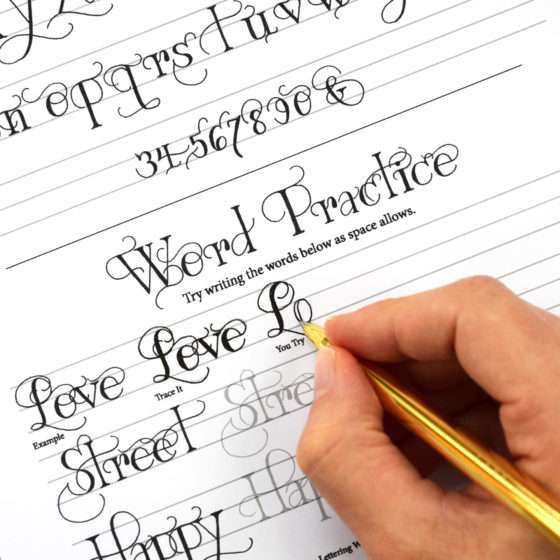 n o p q r s t u v w
34567890 &
Word Practice
Try writing the words below as space allows.
Love Love Lo
Example Trace It You Try
Street Stre
Happy Hap
Lettering W